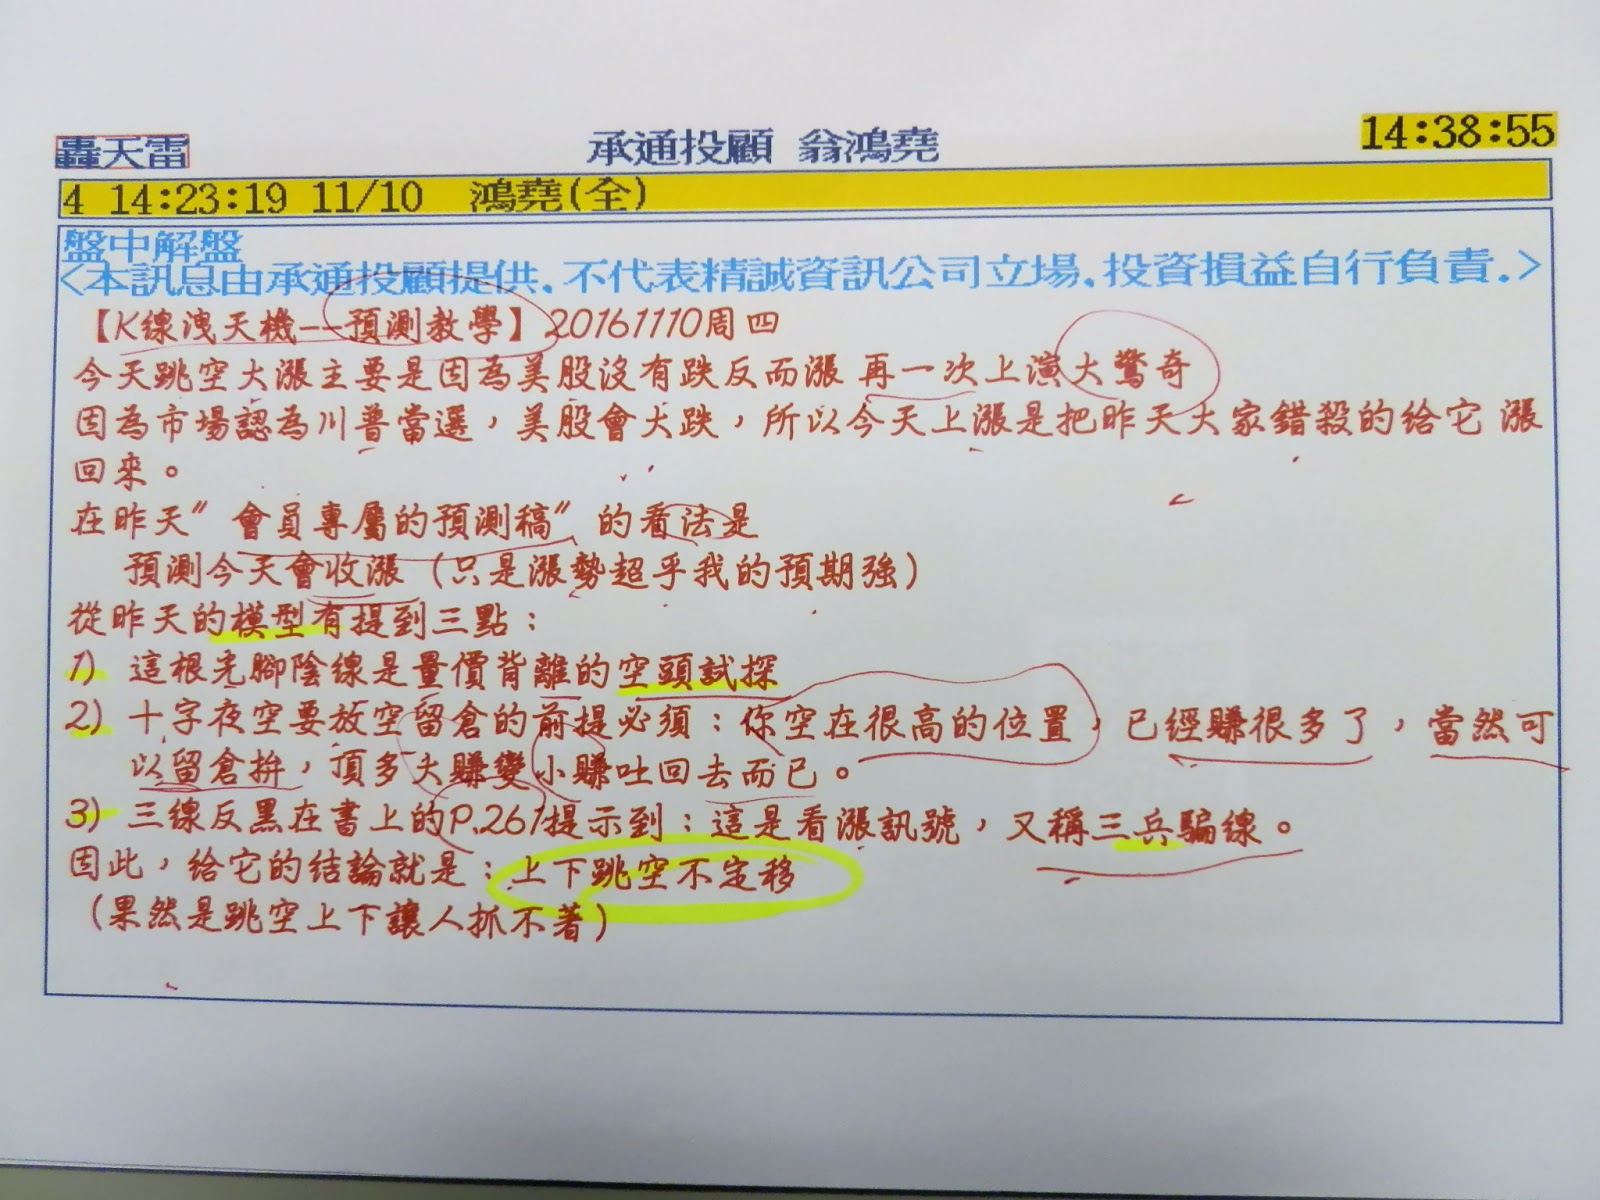 轟天雷
承通投顧 翁鴻堯
14:38:55
4 14:23:19 11/10 鴻堯(全)
盤中解盤
<本訊息由承通投顧提供.不代表精誠資訊公司立場.投資損益自行負責.>
【K線洩天機--預測教學】20161110周四
今天跳空大漲主要是因為美股沒有跌反而漲 再一次上演大驚奇
因為市場認為川普當選，美股會大跌，所以今天上漲是把昨天大家錯殺的給它 漲
回來。
在昨天"會員專屬的預測稿"的看法是
預測今天會收漲（只是漲勢超乎我的預期強）
從昨天的模型有提到三點：
1) 這根光腳陰線是量價背離的空頭試探
2) 十字夜空要放空留倉的前提必須：你空在很高的位置，已經賺很多了，當然可
以留倉拚，頂多大賺變小賺吐回去而已。
3) 三線反黑在書上的P.261提示到：這是看漲訊號，又稱三兵騙線。
因此，給它的結論就是：上下跳空不定移
（果然是跳空上下讓人抓不著）